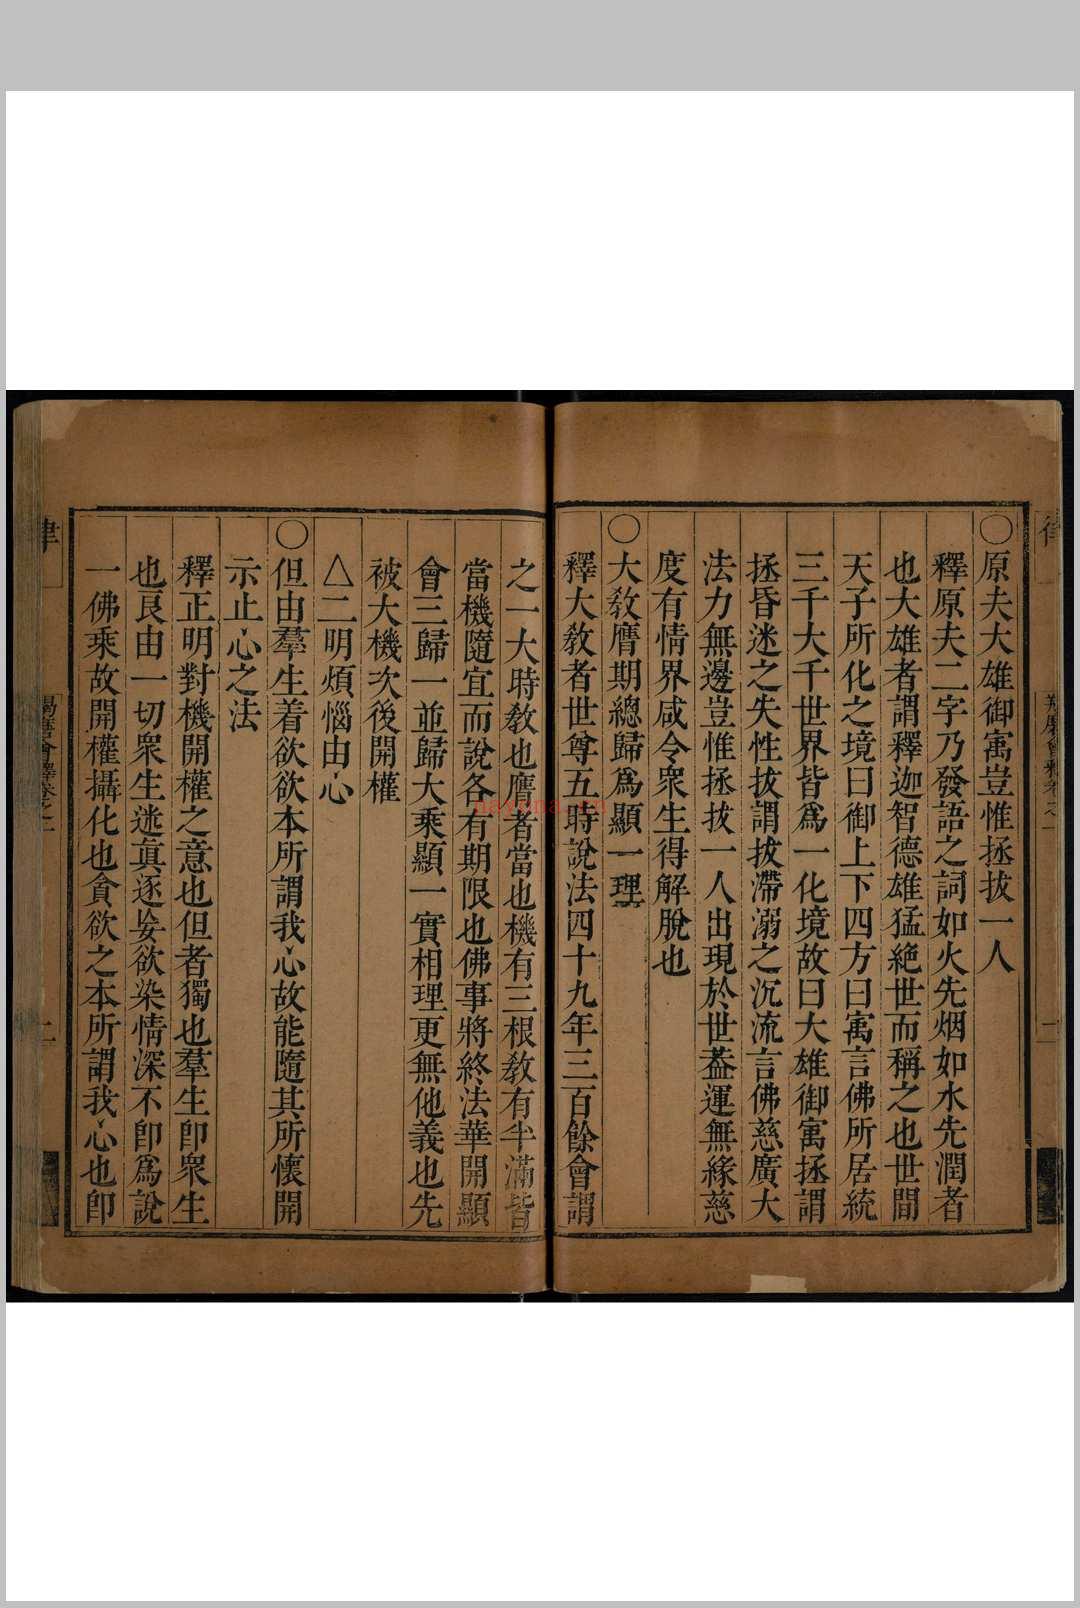 〇原夫大雄御㝢豈惟拯拔一人
釋原夫二字乃發語之詞如火先烟如水先潤者
也大雄者謂釋迦智德雄猛絶世而稱之也世間
天子所化之境曰御上下四方曰㝢言佛所居統
三千大千世界皆爲一化境故曰大雄御㝢拯謂
拯昏迷之失性拔謂拔滯溺之沉流言佛慈廣大
法力無邊豈惟拯拔一人出現於世葢運無緣慈
度有情界咸令衆生得解脫也
〇大敎膺期總歸爲顯一理
釋大敎者世尊五時說法四十九年三百餘會謂
之一大時敎也膺者當也機有三根敎有半滿皆
當機隨宜而說各有期限也佛事將終法華開顯
會三歸一並歸大乘顯一實相理更無他義也先
被大機次後開權
△二明煩惱由心
〇但由羣生着欲欲本所謂我心故能隨其所懷開
示止心之法
釋正明對機開權之意也但者獨也羣生卽衆生
也良由一切衆生迷眞逐妄欲染情深不卽爲說
一佛乘故開權攝化也貪欲之本所謂我心也卽
律
羯磨會釋卷之一
二
nayona.cn